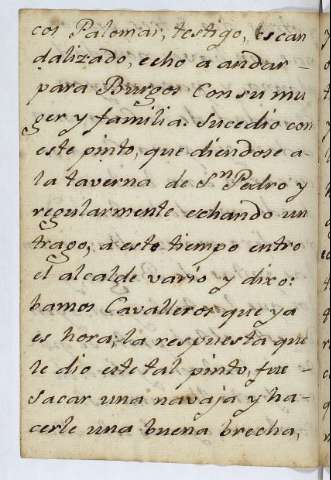 cos Palomar, testigo, escan
dalizado, echo a andar –
para Burgos Con su mu
ger y familia. Sucedio con
este pinto, que diendose a
la taverna de Sn Pedro y
regularmente echando un
trago, a este tiempo entro
el alcalde vario y dixo:
bamos Cavalleros que ya
es hora, la respuesta que
le dio este tal pinto, fue –
sacar una navaja y ha-
cerle una buena brecha,